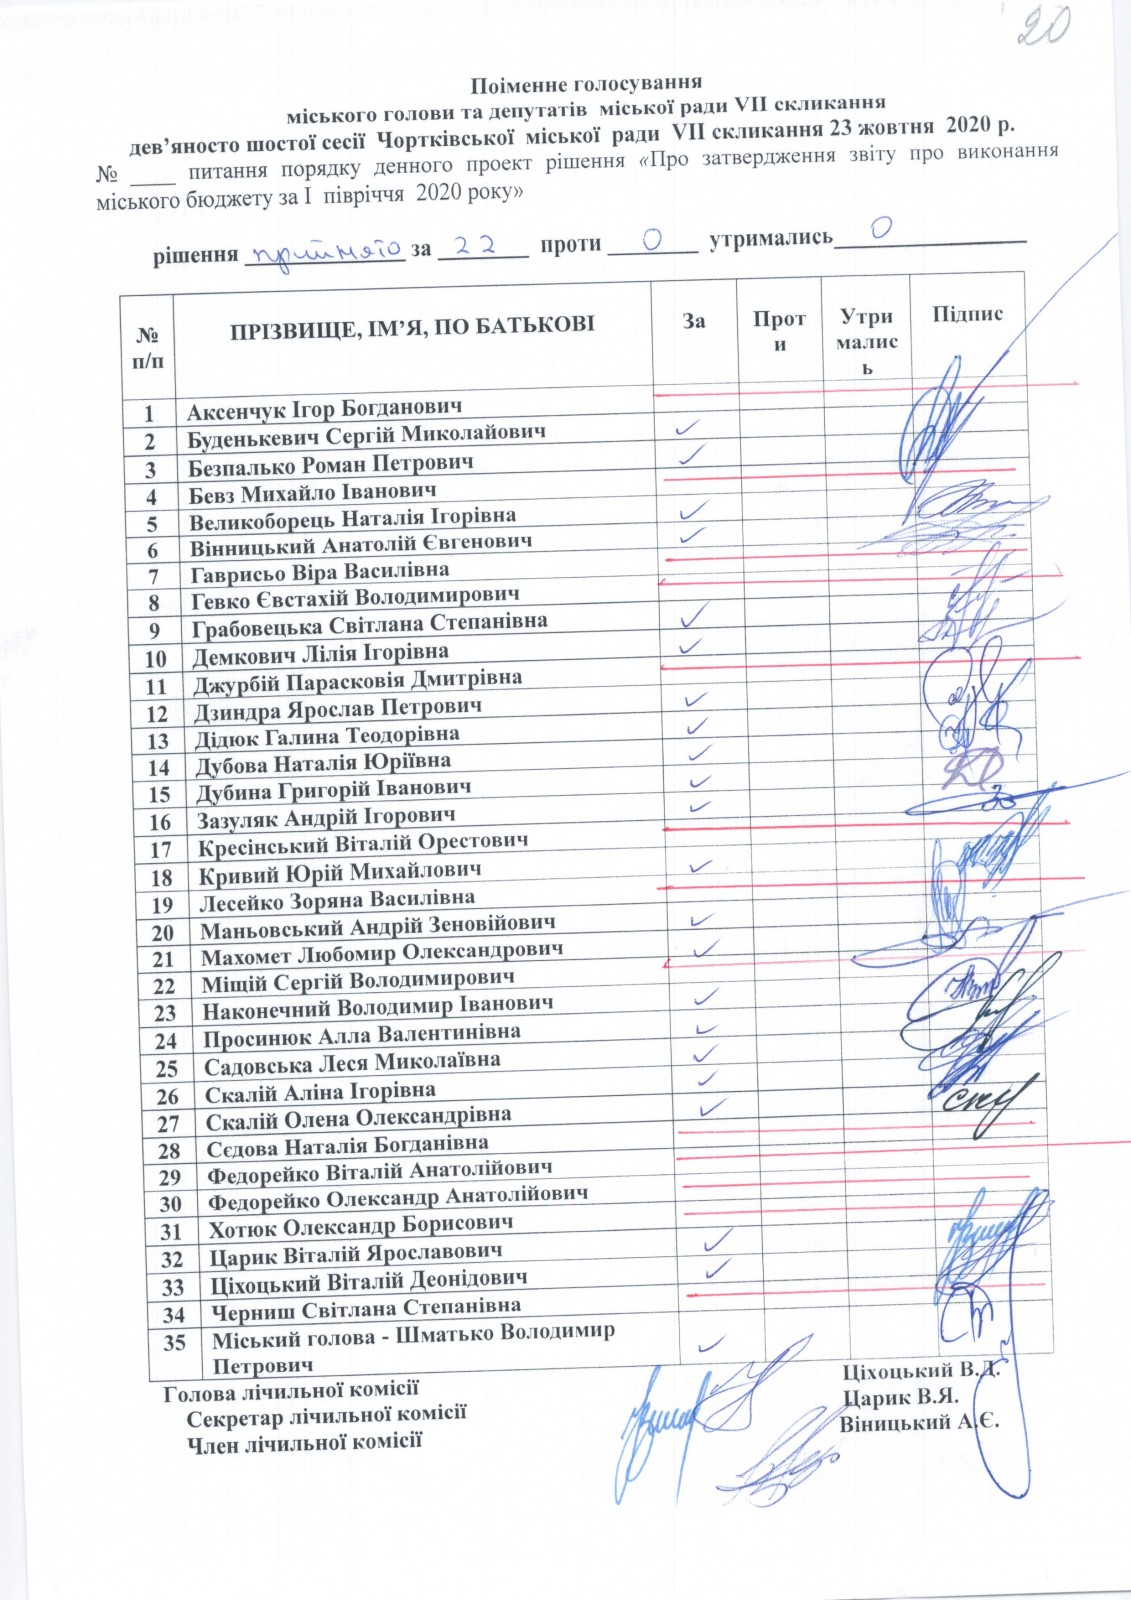 20
Поіменне голосування
міського голови та депутатів міської ради VII скликання
дев’яносто шостої сесії Чортківської міської ради VII скликання 23 жовтня 2020 р.
№ ____ питання порядку денного проект рішення «Про затвердження звіту про виконання
міського бюджету за І півріччя 2020 року»
рішення прийнято за 22 проти 0 утримались 0
№ п/п ПРІЗВИЩЕ, ІМ’Я, ПО БАТЬКОВІ За Проти Утрималисъ Підпис
1 Аксенчук Ігор Богданович
2 Буденькевич Сергій Миколайович ✓
3 Безпалько Роман Петрович ✓
4 Бевз Михайло Іванович
5 Великоборець Наталія Ігорівна ✓
6 Вінницький Анатолій Євгенович ✓
7 Гаврисьо Віра Василівна
8 Гевко Євстахій Володимирович
9 Грабовецька Світлана Степанівна ✓
10 Демкович Лілія Ігорівна ✓
11 Джурбій Парасковія Дмитрівна
12 Дзиндра Ярослав Петрович ✓
13 Дідюк Галина Теодорівна ✓
14 Дубова Наталія Юріївна ✓
15 Дубина Григорій Іванович ✓
16 Зазуляк Андрій Ігорович ✓
17 Кресінський Віталій Орестович
18 Кривий Юрій Михайлович ✓
19 Лесейко Зоряна Василівна
20 Маньовський Андрій Зеновійович ✓
21 Махомет Любомир Олександрович ✓
22 Міщій Сергій Володимирович
23 Наконечний Володимир Іванович ✓
24 Просинюк Алла Валентинівна ✓
25 Садовська Леся Миколаївна ✓
26 Скалій Аліна Ігорівна ✓
27 Скалій Олена Олександрівна ✓
28 Сєдова Наталія Богданівна
29 Федорейко Віталій Анатолійович
30 Федорейко Олександр Анатолійович
31 Хотюк Олександр Борисович
32 Царик Віталій Ярославович ✓
33 Ціхоцький Віталій Деонідович ✓
34 Черниш Світлана Степанівна
35 Міський голова - Шматько Володимир ✓
Петрович
Голова лічильної комісії Ціхоцький В.Д.
Секретар лічильної комісії Царик В.Я.
Член лічильної комісії Віницький А.Є.